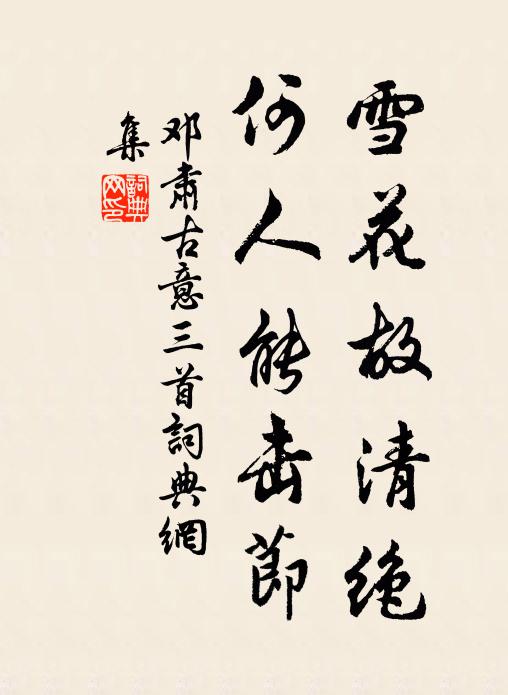 雪花故清绝
何人能击節
邓肃古意三首詞典網
集
詞典网印